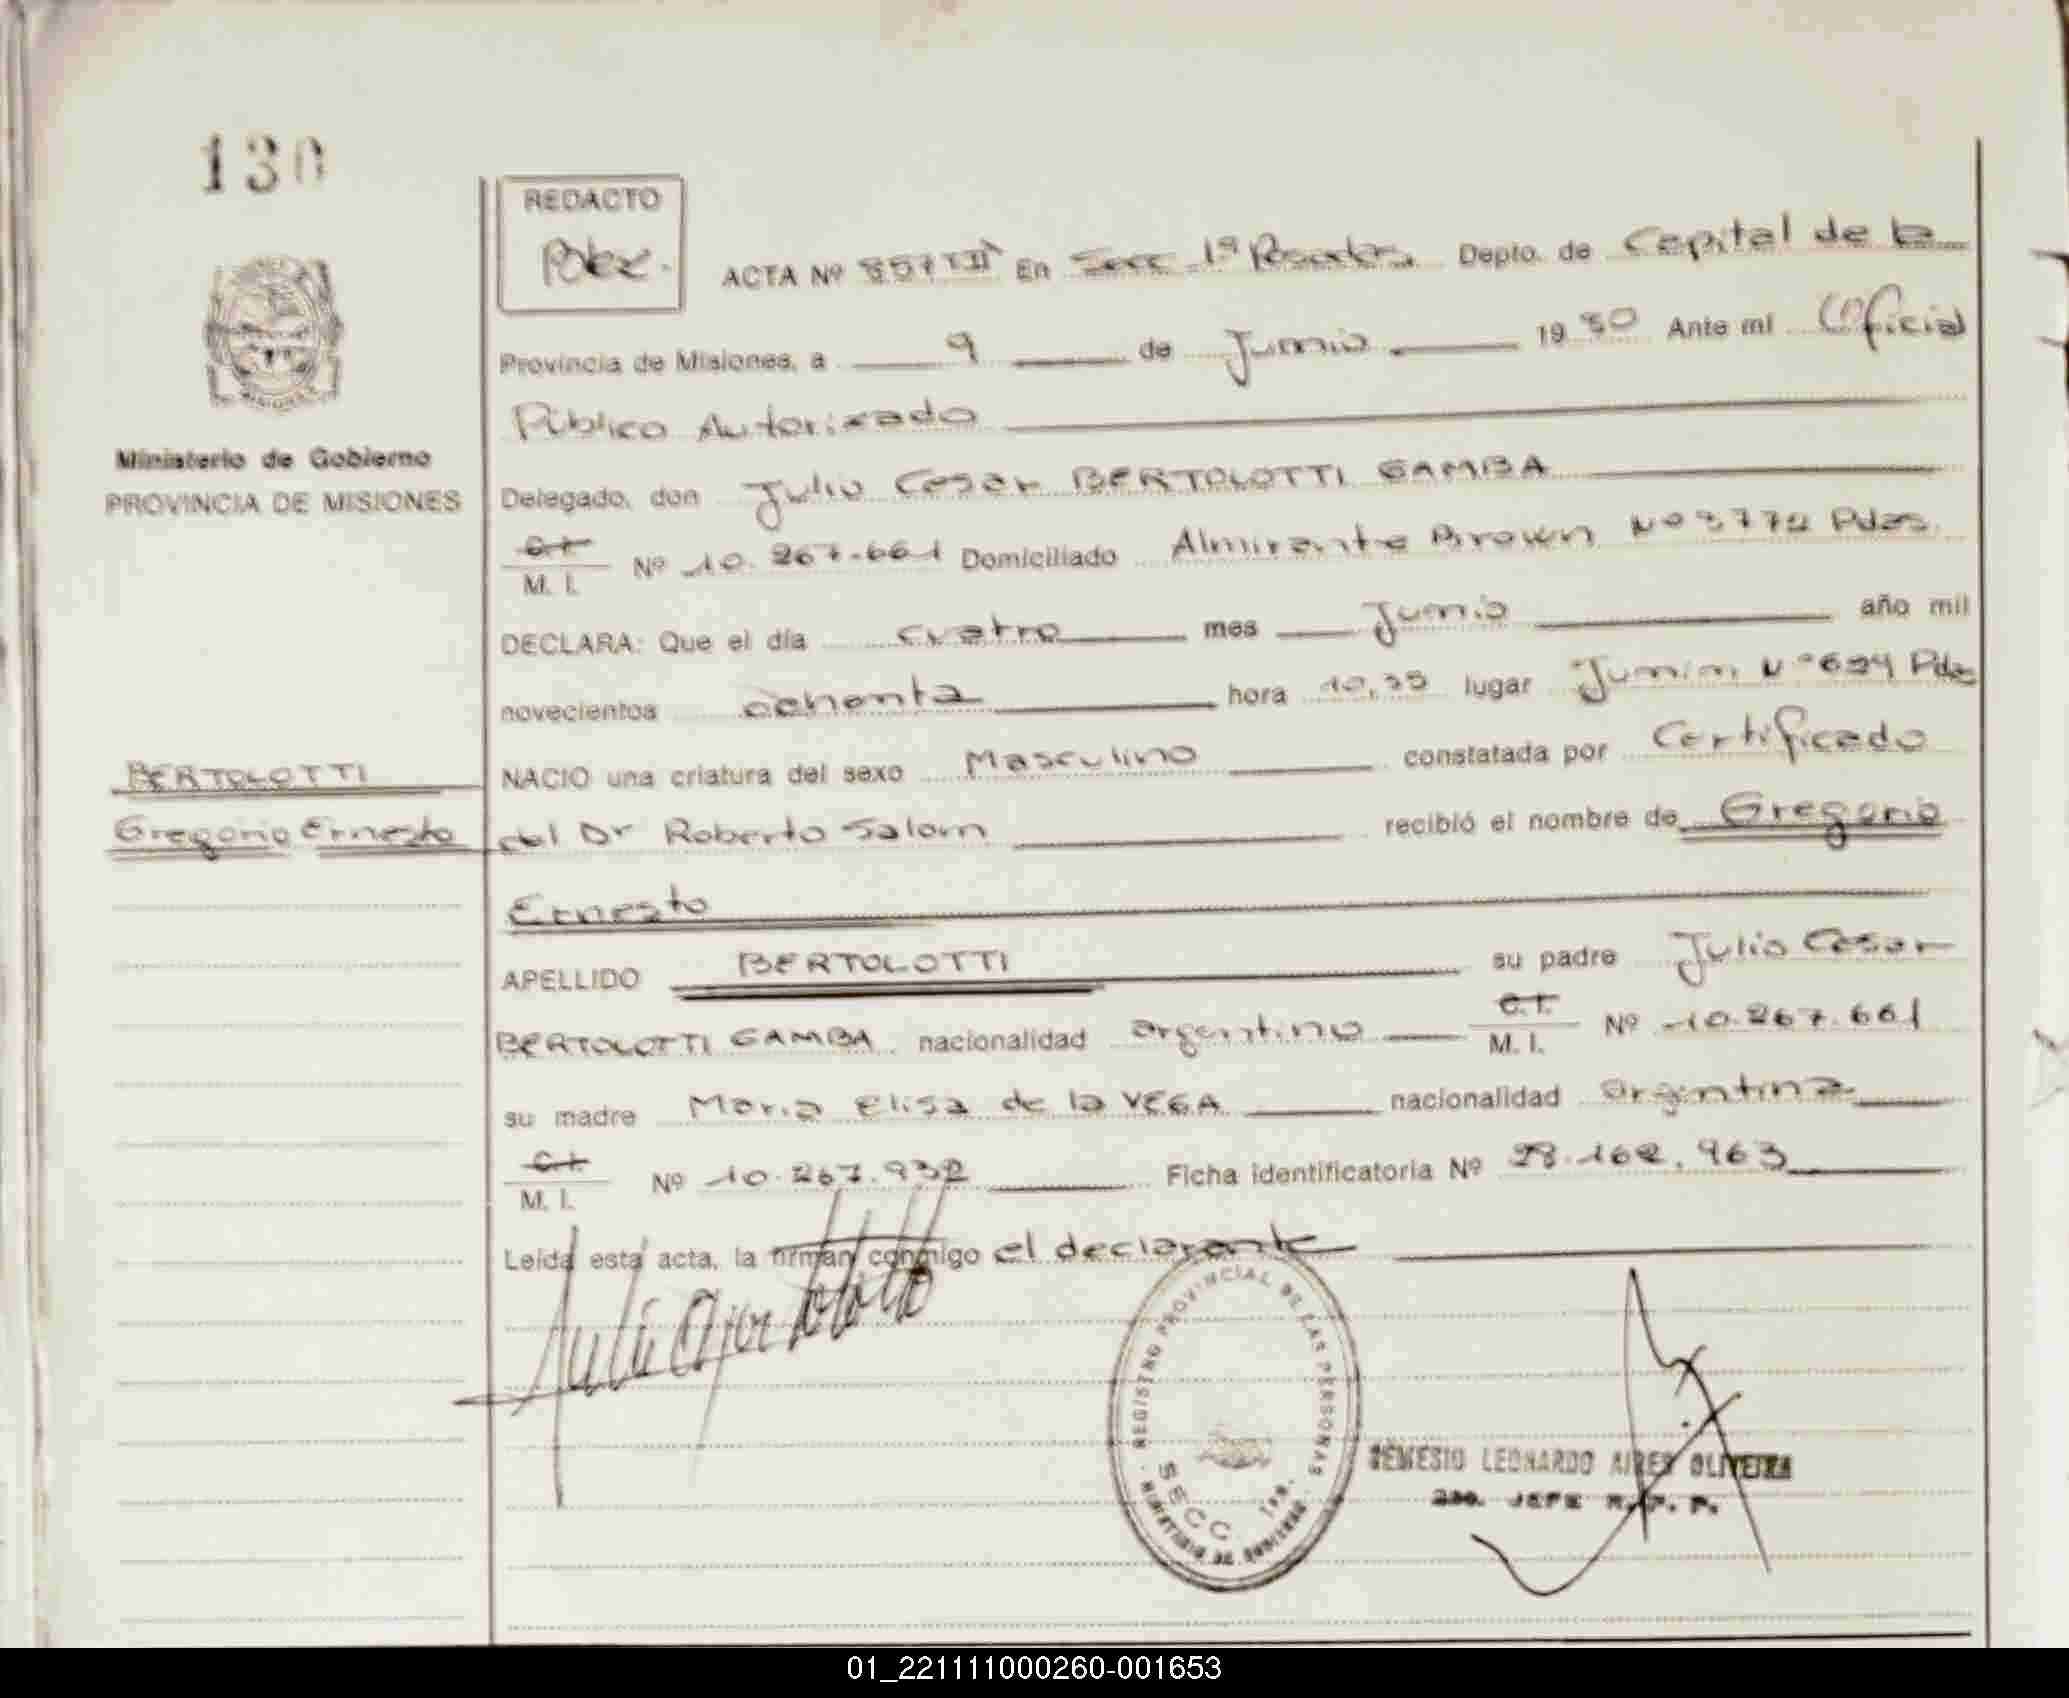 130
REDACTO
ACTA Nº 857 TºIIº En Secc 1ª Posadas Depto. de Capital de la
Provincia de Misiones, a 9 de Junio 1980 Ante mí Oficial
Público Autorizado
Ministerio de Gobierno
PROVINCIA DE MISIONES
Delegado, don Julio Cesar BERTOLOTTI GAMBA
C.I.
M. I. Nº 10.267.661 Domiciliado Almirante Brown Nº Pdas.
DECLARA: Que el día cuatro mes Junio año mil
novecientos ochenta hora lugar Junin Nº Pdas
NACIO una criatura del sexo Masculino constatada por Certificado
BERTOLOTTI
Gregorio Ernesto
del Dr Roberto Salom recibió el nombre de Gregorio
Ernesto
APELLIDO BERTOLOTTI su padre Julio Cesar
BERTOLOTTI GAMBA nacionalidad argentino C.I.
M. I. Nº 10.267.661
su madre Maria Elisa de la VEGA nacionalidad argentina
C.I.
M. I. Nº 10.267.932 Ficha identificatoria Nº 28.162.963
Leída esta acta, la firman conmigo el declarante
REGISTRO PROVINCIAL DE LAS PERSONAS
SECC. 1ra.
MINISTERIO DE GOBIERNO
NEMESIO LEONARDO AIRES OLIVEIRA
2do. JEFE R. P. P.
01_221111000260-001653